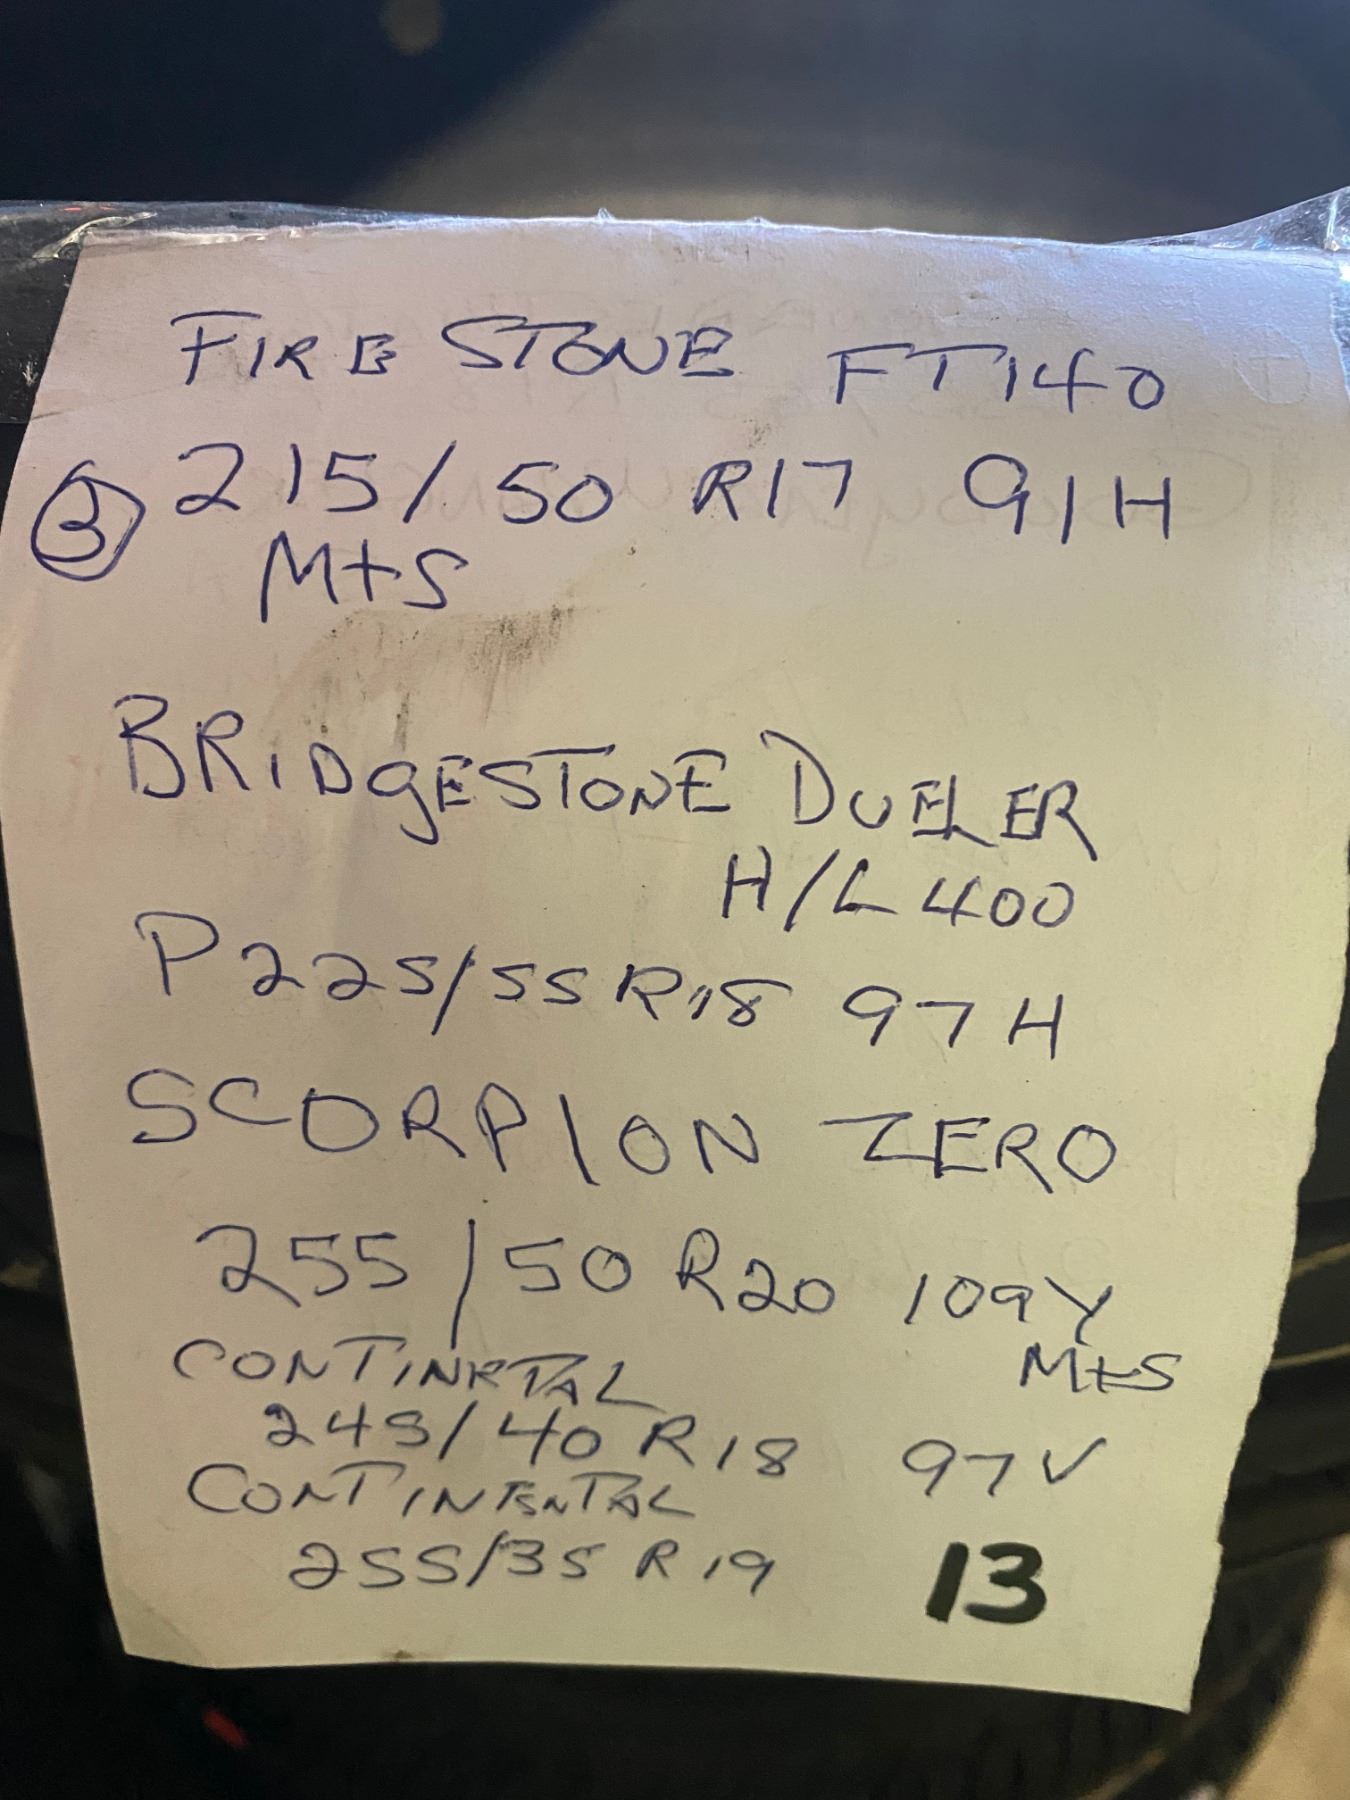 FIRESTONE FT140
③ 215/50 R17 91H
M+S
BRIDGESTONE DUELER
H/L 400
P225/55 R18 97H
SCORPION ZERO
255/50 R20 109Y
M+S
CONTINETAL
245/40 R18 97V
CONTINENTAL
255/35 R19 13